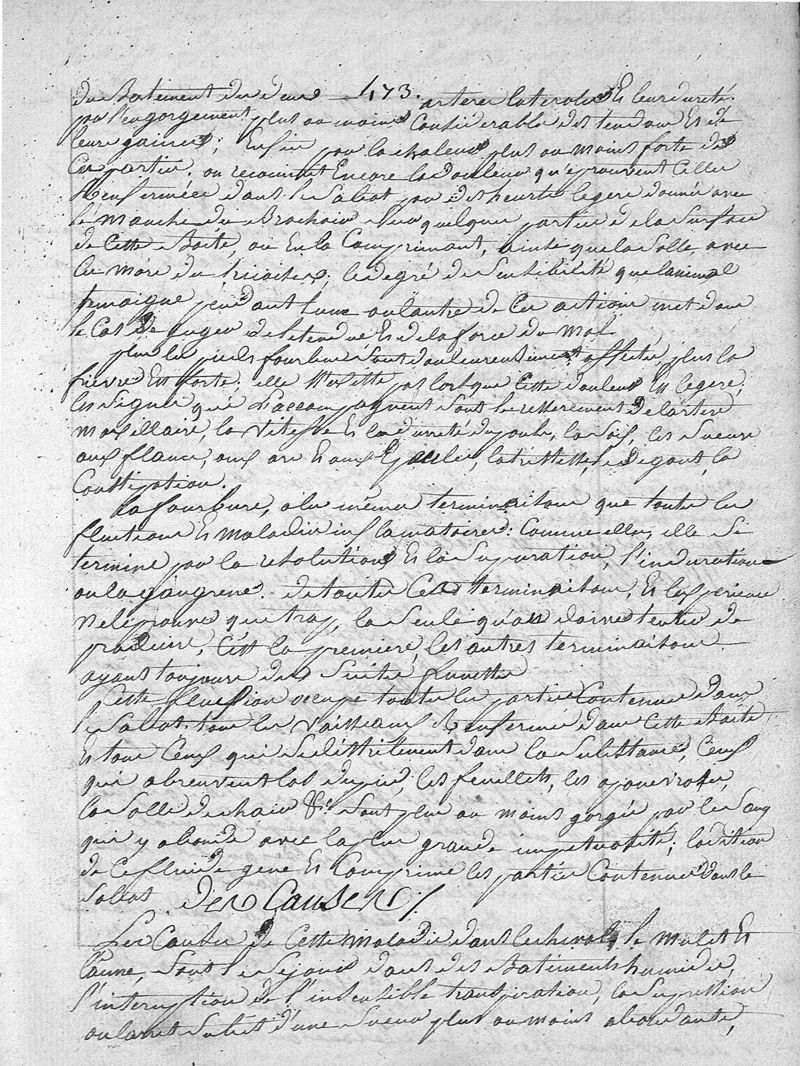 du Batement des deux 473. arteres laterales Et leur dureté.
par l'engorgement plus ou moins Considerable des tendons Et de
leurs gaines; Enfin par la chaleur plus ou moins forte de
Ces parties. on reconnait Encore la douleur qu'eprouvent Celles
Renfermées dans le Sabot par des heurts legers donnés avec
le manche du Brochoir Sur quelques parties de la Surface
de Cette Boîte, ou En la Comprimant, ainsi que la Solle, avec
les mors du tricoises; le degré de Sensibilité que l'animal
temoigne pendant l'une ou l'autre de Ces actions met dans
le Cas de juger de l'etendue Et de la force du Mal
plus les pieds fourbus Sont douleureusement affectés, plus la
fievre Est forte; elle N'existe pas lorsque Cette douleur Est legere;
les Signes qui l'accompagnent Sont le resserement de l'artere
maxillaire, la Vitesse Et la dureté du pouls, la Soif, les Sueurs
aux flancs, aux ars Et aux Epaules, la tristesse, le degout, la
Constipation.
La fourbure, a les mêmes terminaisons que toutes les
fluctions Et maladies inflamatoires: Comme elles, elle Se
termine par la resolution Et la Supuration, l'induration
ou la gangrene. de toutes Ces terminaisons, Et l'experience
Ne le prouve que trop, la Seule qu'on doive tenter de
produire, C'est la premiere, les autres terminaisons
ayant toujours des Suites funestes
Cette fluxion occupe toutes les parties Contenues dans
le Sabot, tous les Vaisseaux Renfermés dans Cette Boîte
Et tous Ceux qui Se distribuent dans la Substance, Ceux
qui abreuvent l'os du pied, les feuillets, les aponevroses,
la Solle de chair &c. Sont plus ou moins gorgés par le Sang
qui y aborde avec la plus grande impetuosité;
de Ce fluide gene Et Comprime les parties Contenues dans le
Sabot Des Causes /.
Les Causes de Cette Maladie dans le cheval, le Mulet Et
l'anne, Sont le Sejour dans des Batiments humides,
l'interruption de l'insensible transpiration, la Supression
ou l'arret Subit d'une Sueur plus ou moins abondante,